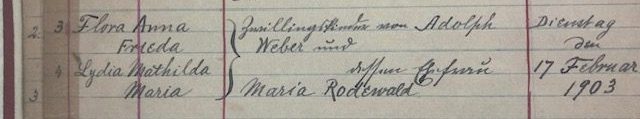 2. 3 Flora Anna Zwillingskinder von Adolph Dienstag
Frieda Weber und den
4 Lydia Mathilda dessen Ehefrau 17 Februar
3 Maria Maria Rodewald 1903